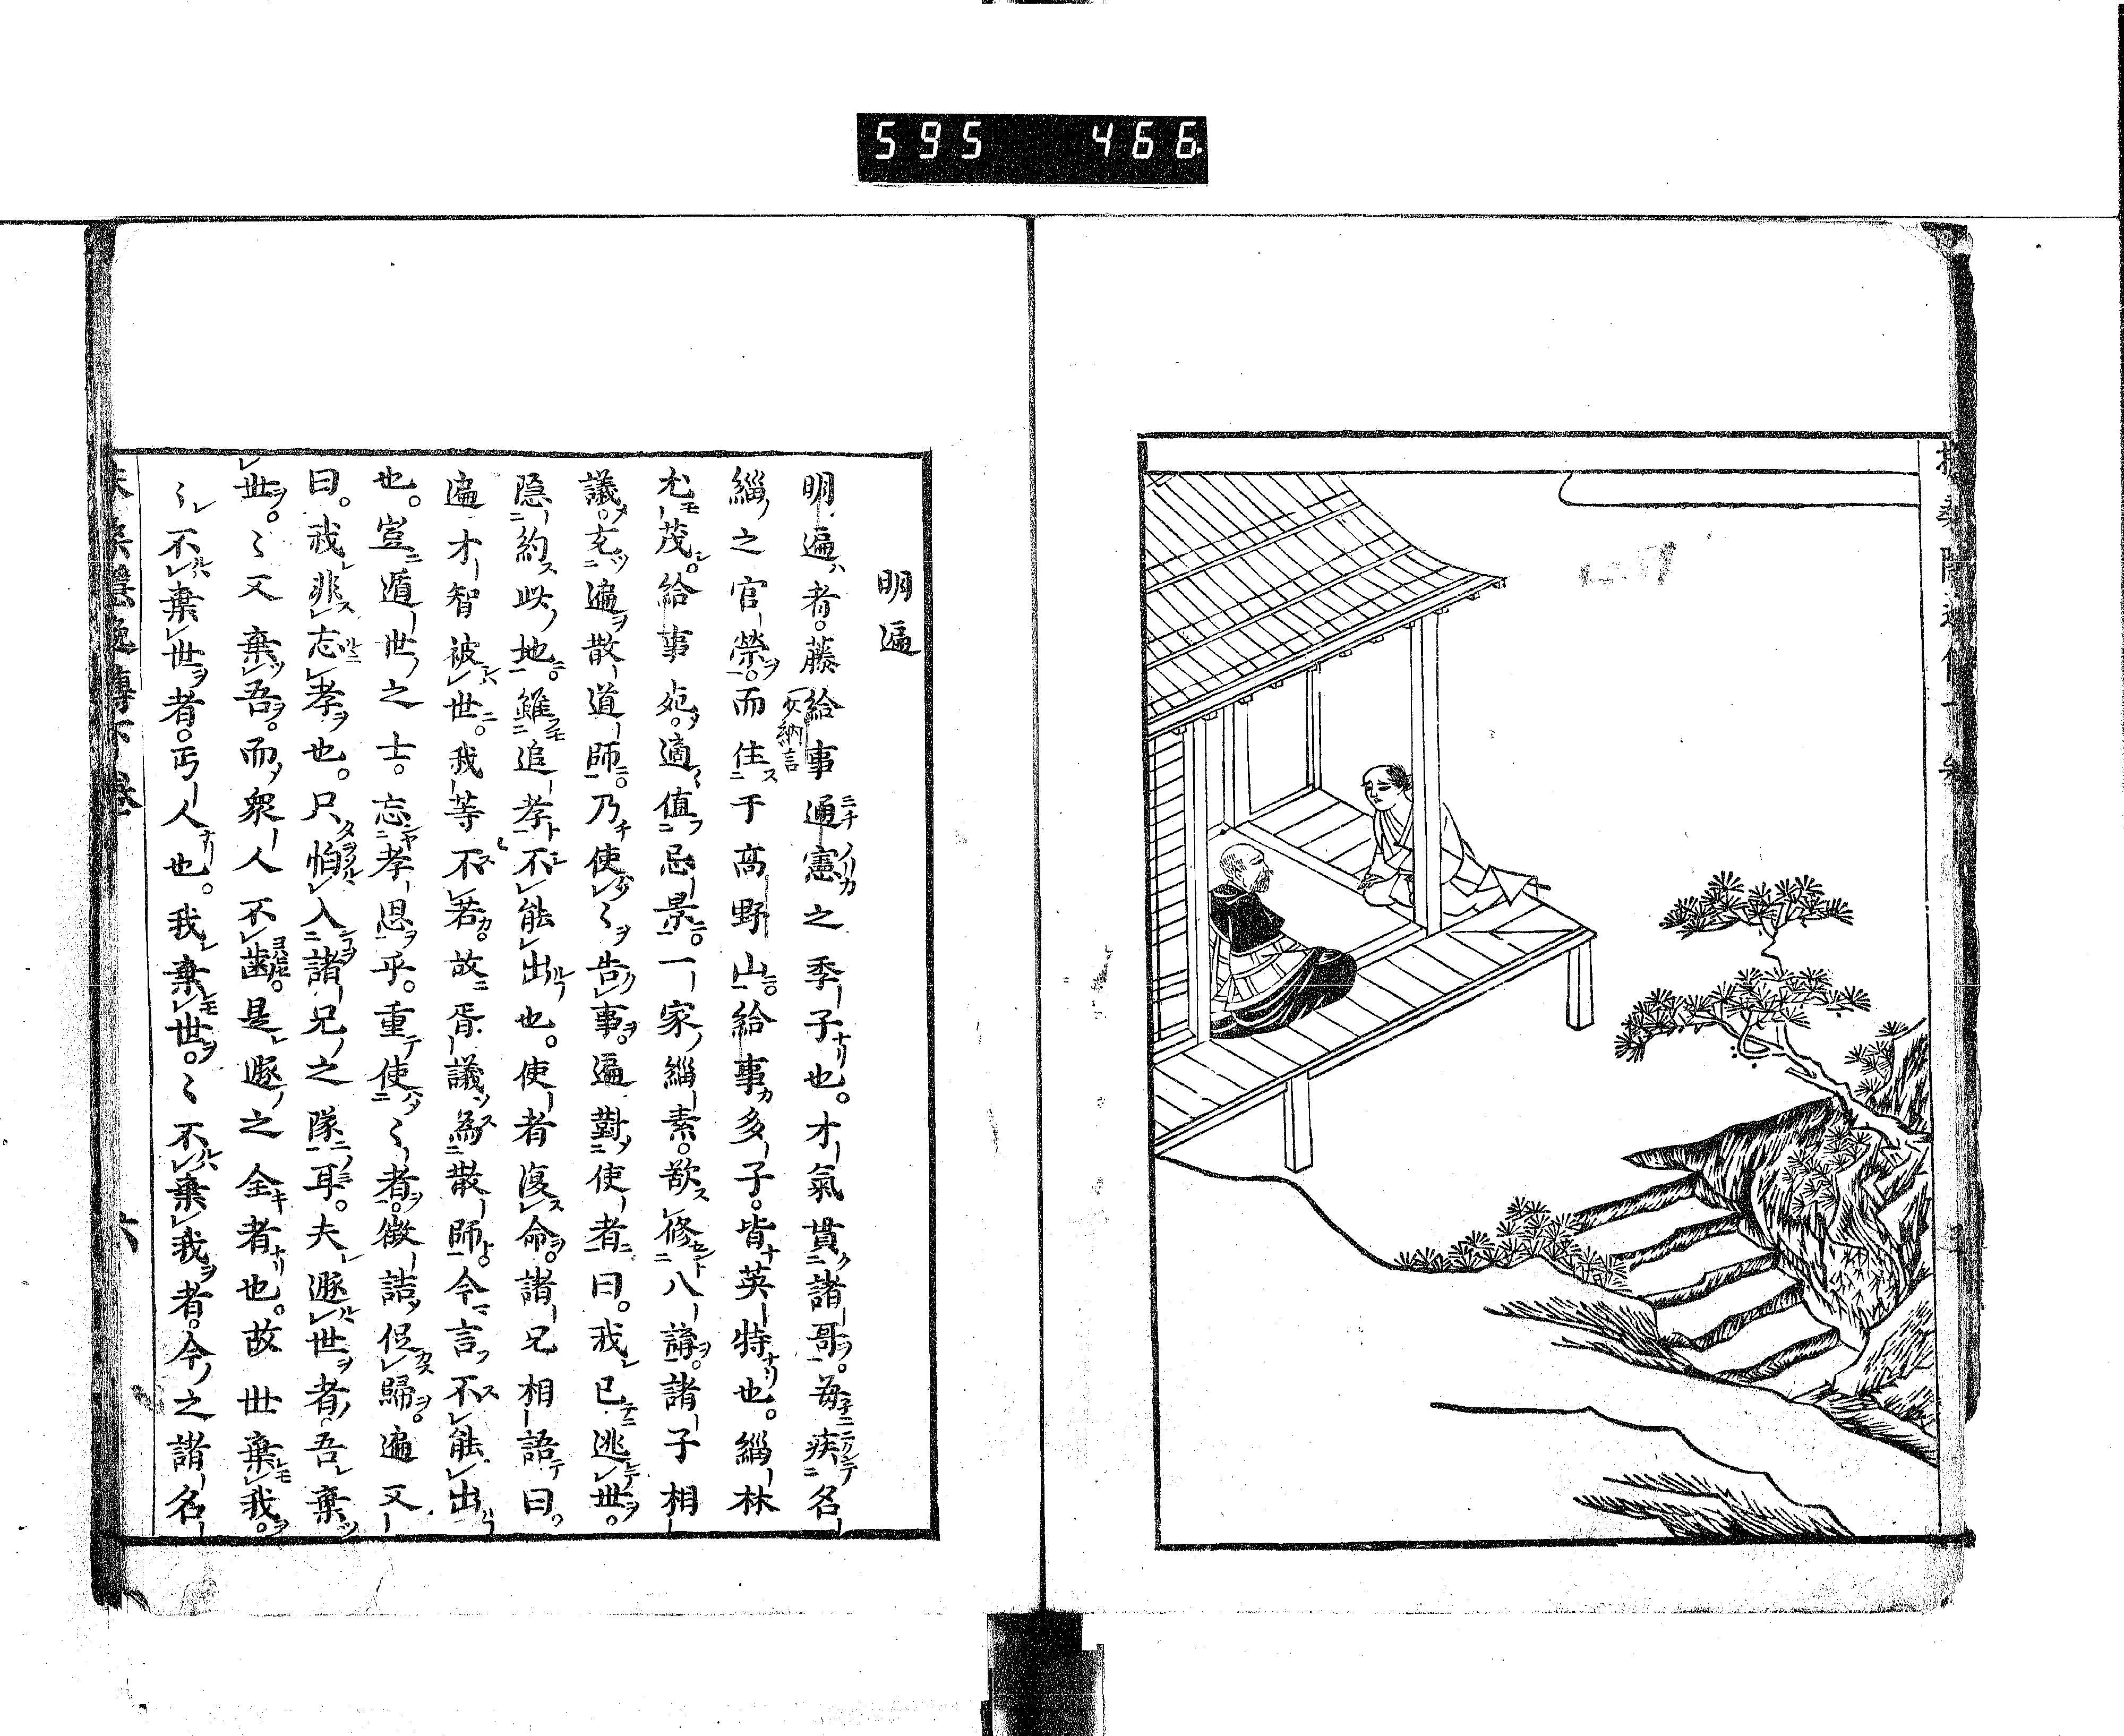 595 466
明遍
明遍者。藤給事通憲之季子也。才氣貫諸哥。每疾名
少納言
緇之官榮。而住于高野山。給事多子。皆英特也。緇林
尤茂。給事宛。適值忌景。一家緇素。欲修八講。諸子相
議。玄遍散道師。乃使〻告事。遍對使者曰。我已逃世。
隱約此地。雖追孝不能出也。使者復命。諸兄相語曰。
遍才智被世。我等不若。故胥議為散師。今言不能出
也。豈遁世之士。忘孝思乎。重使〻者。徵詰促歸。遍又
曰。我非忘孝也。只怕入諸兄之隊耳。夫遯世者吾棄
世。〻又棄吾。而眾人不齒。是遯之全者也。故世棄我。
〻不棄世者。丐人也。我棄世。〻不棄我者。今之諸名
扶桑隱逸傳下卷 六